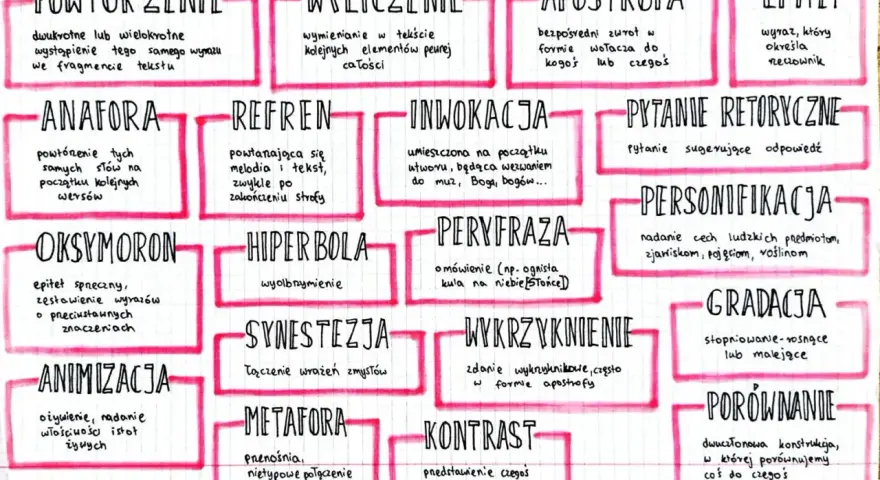 POWTÓRZENIE
dwukrotne lub wielokrotne
wystąpienie tego samego wyrazu
we fragmencie tekstu
WYLICZENIE
wymienianie w tekście
kolejnych elementów pewnej
całości
APOSTROFA
bezpośredni zwrot w
formie wołacza do
kogoś lub czegoś
EPITET
wyraz, który
określa
rzeczownik
ANAFORA
powtórzenie tych
samych słów na
początku kolejnych
wersów
REFREN
powtarzająca się
melodia i tekst,
zwykle po
zakończeniu strofy
INWOKACJA
umieszczona na początku
utworu, będąca wezwaniem
do muz, Boga, bogów...
PYTANIE RETORYCZNE
Pytanie sugerujące odpowiedź
OKSYMORON
epitet sprzeczny,
zestawienie wyrazów
o przeciwstawnych
znaczeniach
HIPERBOLA
wyolbrzymienie
PERYFRAZA
omówienie (np. ognista
kula na niebie[Słońce])
PERSONIFIKACJA
nadanie cech ludzkich przedmiotom,
zjawiskom, pojęciom, roślinom
SYNESTEZJA
łączenie wrażeń zmysłów
WYKRZYKNIENIE
zdanie wykrzyknikowe, często
w formie apostrofy
GRADACJA
stopniowanie-rosnące
lub malejące
ANIMIZACJA
ożywienie, nadanie
właściwości istot
żywych
METAFORA
przenośnia,
nietypowe połączenie
KONTRAST
przedstawienie czegoś
PORÓWNANIE
dwuczłonowa konstrukcja,
w której porównujemy
coś do czegoś